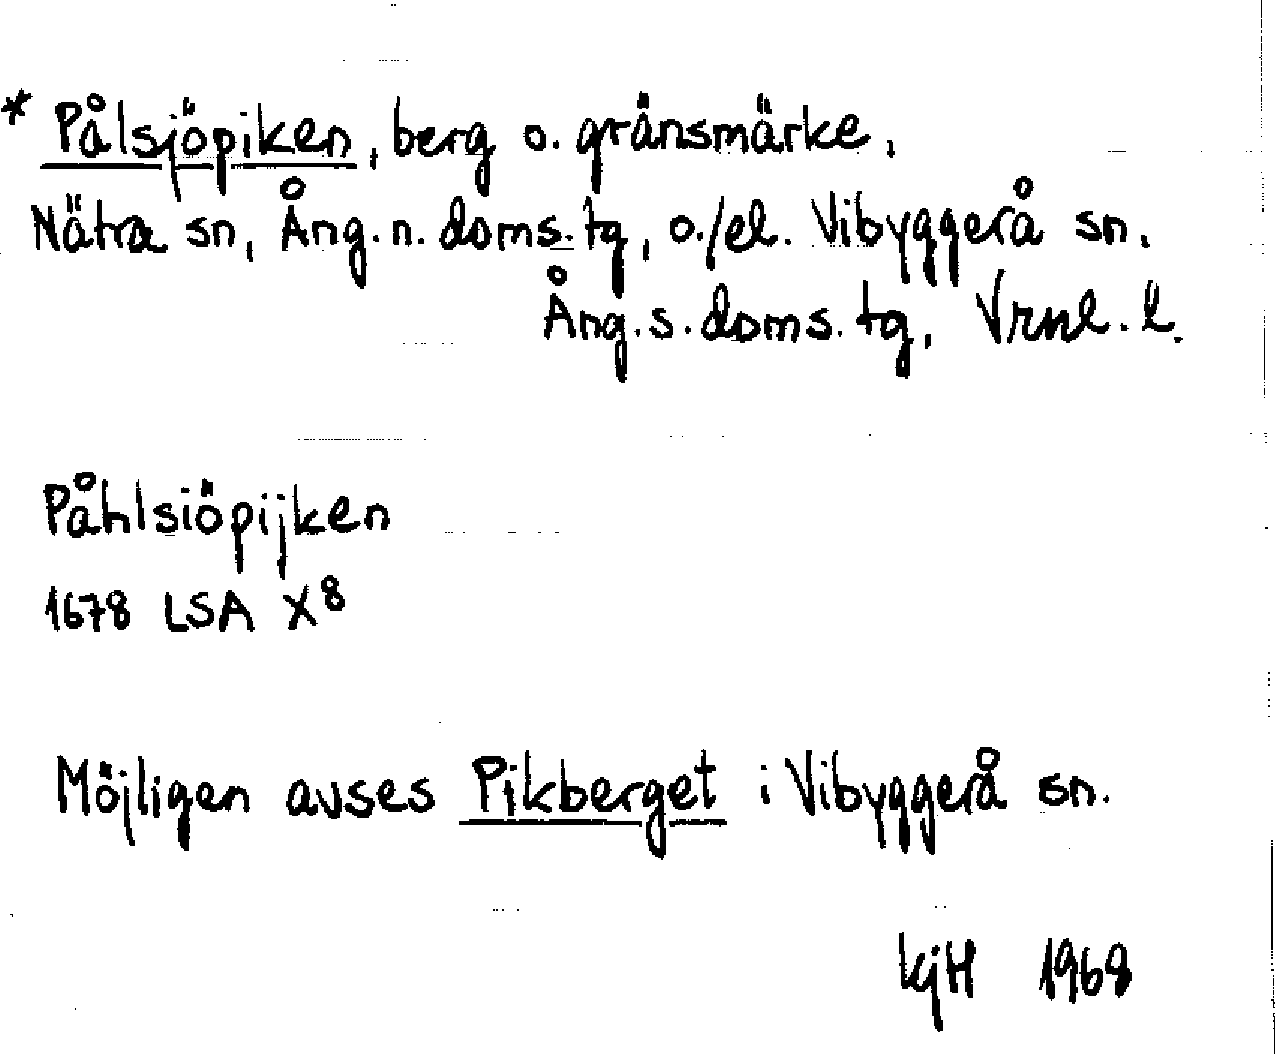 * Pålsjöpiken, berg o. gränsmärke,
Nätra sn, Ång. n. doms. tg, o./el. Vibyggerå sn.
Ång. s. doms. tg, Vrnl. l.
Påhlsiöpijken
1678 LSA X8
Möjligen avses Pikberget i Vibyggerå sn.
KjH 1968